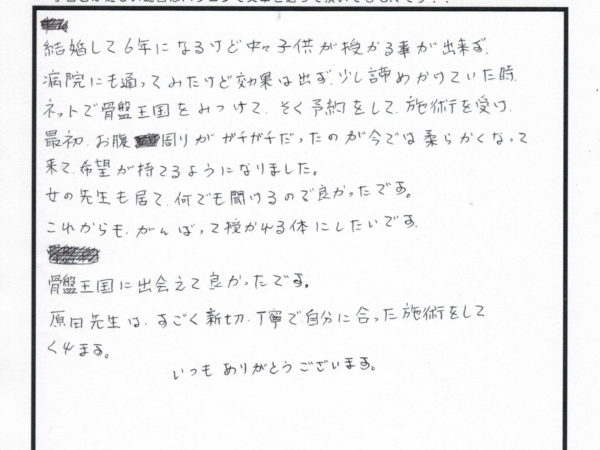 結婚して6年になるけど中々子供が授かる事が出来ず、
病院にも通ってみたけど効果は出ず、少し諦めかけていた時、
ネットで骨盤王国をみつけて、そく予約をして、施術を受け、
最初、お腹周りがガチガチだったのが今では柔らかくなって
来て、希望が持てるようになりました。
女の先生も居て、何でも聞けるので良かったです。
これからも、がんばって授かれる体にしたいです。
骨盤王国に出会えて良かったです。
原田先生は、すごく新切、丁寧で自分に合った施術をして
くれます。
いつもありがとうございます。